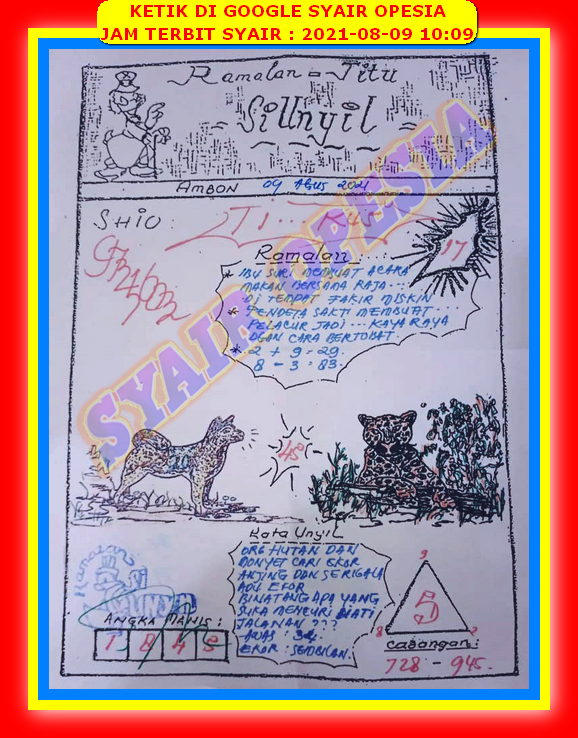 KETIK DI GOOGLE SYAIR OPESIA
JAM TERBIT SYAIR : 2021-08-09 10:09
Ramalan = Jitu
Si Unyil
AMBON 09 AGUS 2021
SHIO : TI...KUS
17
Ramalan
* IBU SURI MEMBUAT ACARA
MAKAN BERSAMA RAJA...
DI TEMPAT FAKIR MISKIN
* PENDETA SAKTI MEMBUAT...
PELACUR JADI... KAYA RAYA
DGAN CARA BERTOBAT
* 2 + 9 = 29.
8 - 3 : 83.
SYAIR OPESIA
48
Kata Unyil
ORG HUTAN DAN
MONYET CARI EKOR
ANJING DAN SERIGALA
ADU EKOR
BINATANG APA YANG
SUKA MENCURI DIATI
JALANAN ???
AWAS : 34.
EKOR : SEMBILAN.
Ramalan
SI
UNYIL
ANGKA MANIS :
7 8 4 5
9
5
8 2
Cabangan :
728 - 945.